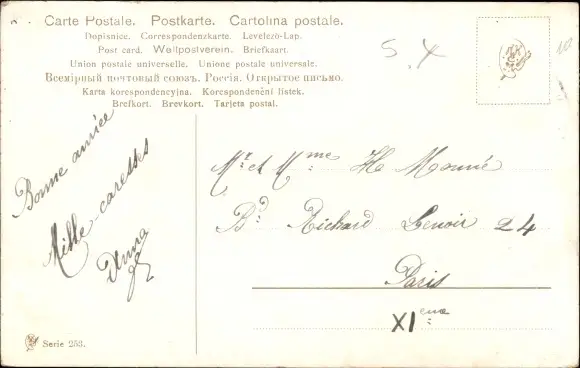 Carte Postale. Postkarte. Cartolina postale.
Dopisnice. Correspondenzkarte. Levelező-Lap.
Post card. Weltpostverein. Briefkaart.
Union postale universelle. Unione postale universale.
Всемірный почтовый союзъ. Россія. Открытое письмо.
Karta korespondencyjna. Korespondenční lístek.
Brefkort. Brevkort. Tarjeta postal.
S. X
Bonne année
Mille caresses
Anna
Mr et Mme H Monié
Bd Richard Lenoir 24
Paris
XIeme
Serie 253.